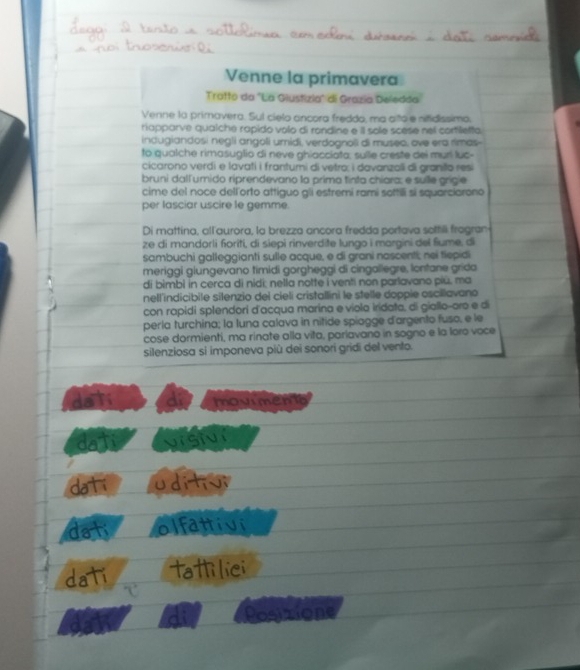 Leggi il testo e sottolinea con colori diversi i dati sensoriali
e poi trascrivili
Venne la primavera
Tratto da "La Giustizia" di Grazia Deledda
Venne la primavera. Sul cielo ancora freddo, ma alto e nitidissimo,
riapparve qualche rapido volo di rondine e il sole scese nel cortiletto,
indugiandosi negli angoli umidi, verdognoli di musco, ove era rimas-
to qualche rimasuglio di neve ghiacciata; sulle creste dei muri luc-
cicarono verdi e lavati i frantumi di vetro; i davanzali di granito resi
bruni dall'umido riprendevano la prima tinta chiara; e sulle grigie
cime del noce dell'orto attiguo gli estremi rami sottili si squarciarono
per lasciar uscire le gemme.
Di mattina, all'aurora, la brezza ancora fredda portava sottili fragran-
ze di mandorli fioriti, di siepi rinverdite lungo i margini del fiume, di
sambuchi galleggianti sulle acque, e di grani nascenti; nei tiepidi
meriggi giungevano timidi gorgheggi di cingallegre, lontane grida
di bimbi in cerca di nidi; nella notte i venti non parlavano più, ma
nell'indicibile silenzio dei cieli cristallini le stelle doppie oscillavano
con rapidi splendori d'acqua marina e viola iridata, di giallo-oro e di
perla turchina; la luna calava in nitide spiagge d'argento fuso, e le
cose dormienti, ma rinate alla vita, parlavano in sogno e la loro voce
silenziosa si imponeva più dei sonori gridi del vento.
dati di movimento
dati visivi
dati uditivi
dati olfattivi
dati tattiliei
dati di posizione